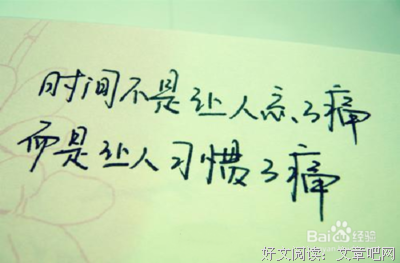 时间不是让人忘了痛
而是让人习惯了痛
Baidu经验
好文阅读：文章吧网